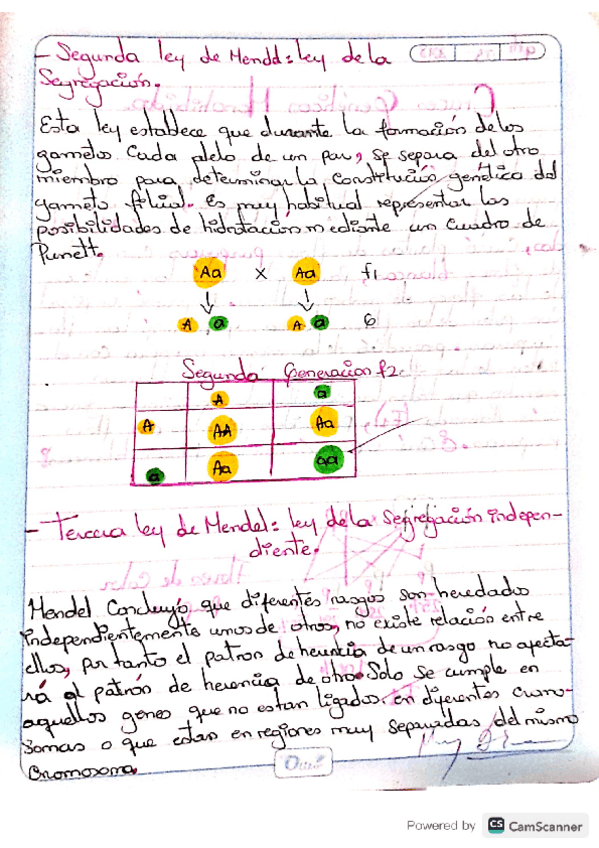 - Segunda ley de Mendd: ley de la
Segregación.
Esta ley establece que durante la formación de los
gametos Cada alelo de un par, se separa del otro
miembro para determinar la Constitución genético del
gameto filial. Es muy habitual representar las
posibilidades de hidratación mediante un cuadro de
Punett.
Aa x Aa f1
A a A a G
Segunda Generacion f2
A a
A AA Aa
a Aa aa
- Tercera ley de Mendel: ley de la Segregación indepen-
diente.
Mendel Concluyó que diferentes rasgos son heredados
independientemente unos de otros, no existe relación entre
ellos, por tanto el patron de herencia de un rasgo no afecta-
rá al patrón de herencia de otro. Solo se cumple en
aquellos genes que no estan ligados en diferentes cromo-
somas o que estan en regiones muy separadas del mismo
Cromosoma.
Powered by CS CamScanner